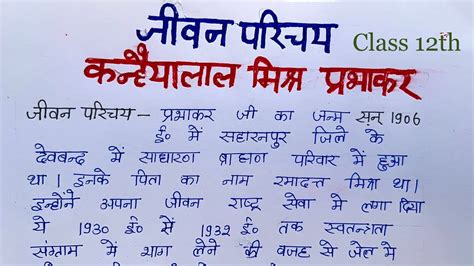 जीवन परिचय
Class 12th
कन्हैयालाल मिश्र प्रभाकर
जीवन परिचय – प्रभाकर जी का जन्म सन् 1906
ई० में सहारनपुर जिले के
देवबन्द में साधारण ब्राह्मण परिवार में हुआ
था। इनके पिता का नाम रमादत्त मिश्र था।
इन्होंने अपना जीवन राष्ट्र सेवा में लगा दिया
ये 1930 ई० में 1932 ई० तक स्वतन्त्रता
संग्राम में भाग लेने की वजह से जेल मे